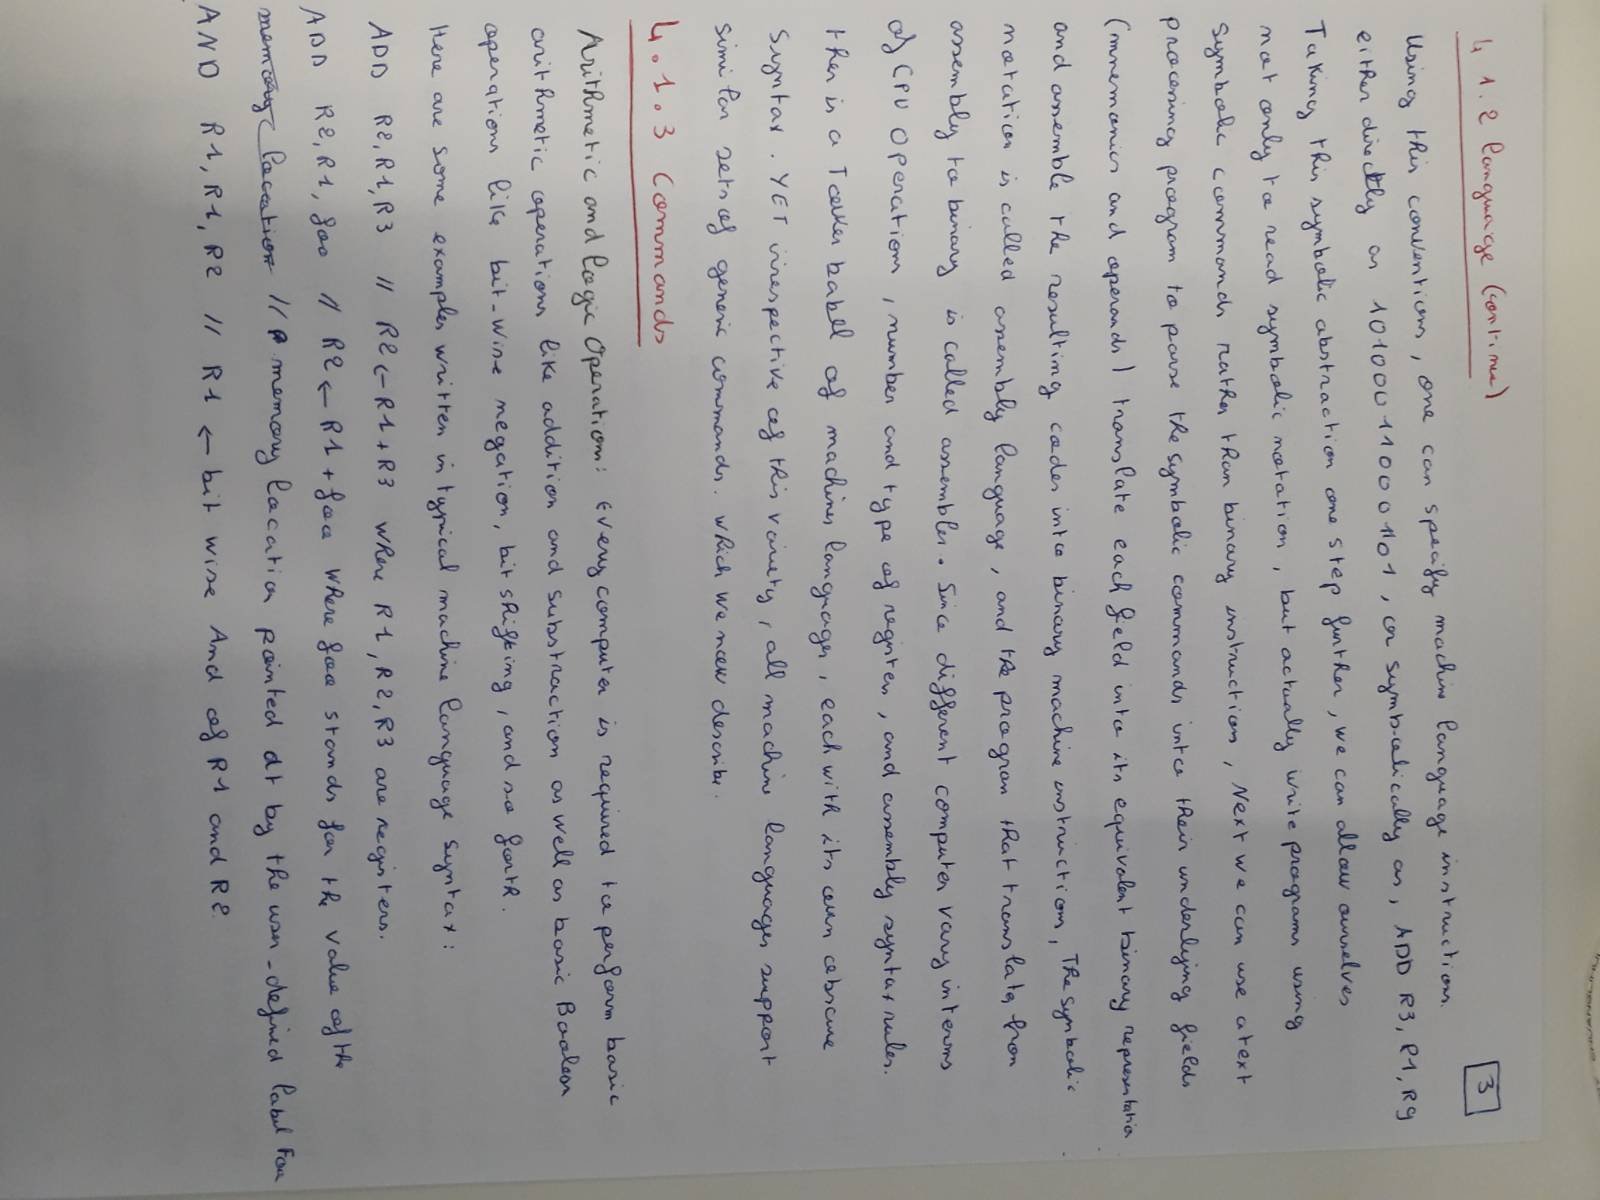 3
4.1.2 language (continue)
Using this conventions, one can specify machine language instruction.
either directly as 1010001100011001, or symbolically as, ADD R3, R1, R9
Taking this symbolic abstraction one step further, we can allow ourselves
not only to read symbolic notation, but actually write programs using
symbolic commands rather than binary instructions, Next we can use a text
processing program to parse the symbolic commands into their underlying fields
(mnemonics and operands) translate each field into its equivalent binary representation
and assemble the resulting codes into binary machine instructions, The symbolic
notation is called assembly language, and the program that translates from
assembly to binary is called assembler. Since different computer vary in terms
of CPU operations, number and type of registers, and assembly syntax rules.
ther is a Tower babel of machines languages, each with its own obscure
syntax. YET irrespective of this variety, all machine languages support
similar sets of generic commands. which we now describe.
4.1.3 Commands
Arithmetic and logic Operations: Every computer is required to perform basic
arithmetic operations like addition and substraction as well as basic Boolean
operations like bit-wise negation, bit shifting, and so forth.
Here are some examples written in typical machine language syntax:
ADD R2, R1, R3 // R2 ← R1 + R3 where R1, R2, R3 are registers.
ADD R2, R1, foo // R2 ← R1 + foo where foo stands for the value of the
memory location // memory location pointed at by the user-defined label Foo
AND R1, R1, R2 // R1 ← bit wise And of R1 and R2.